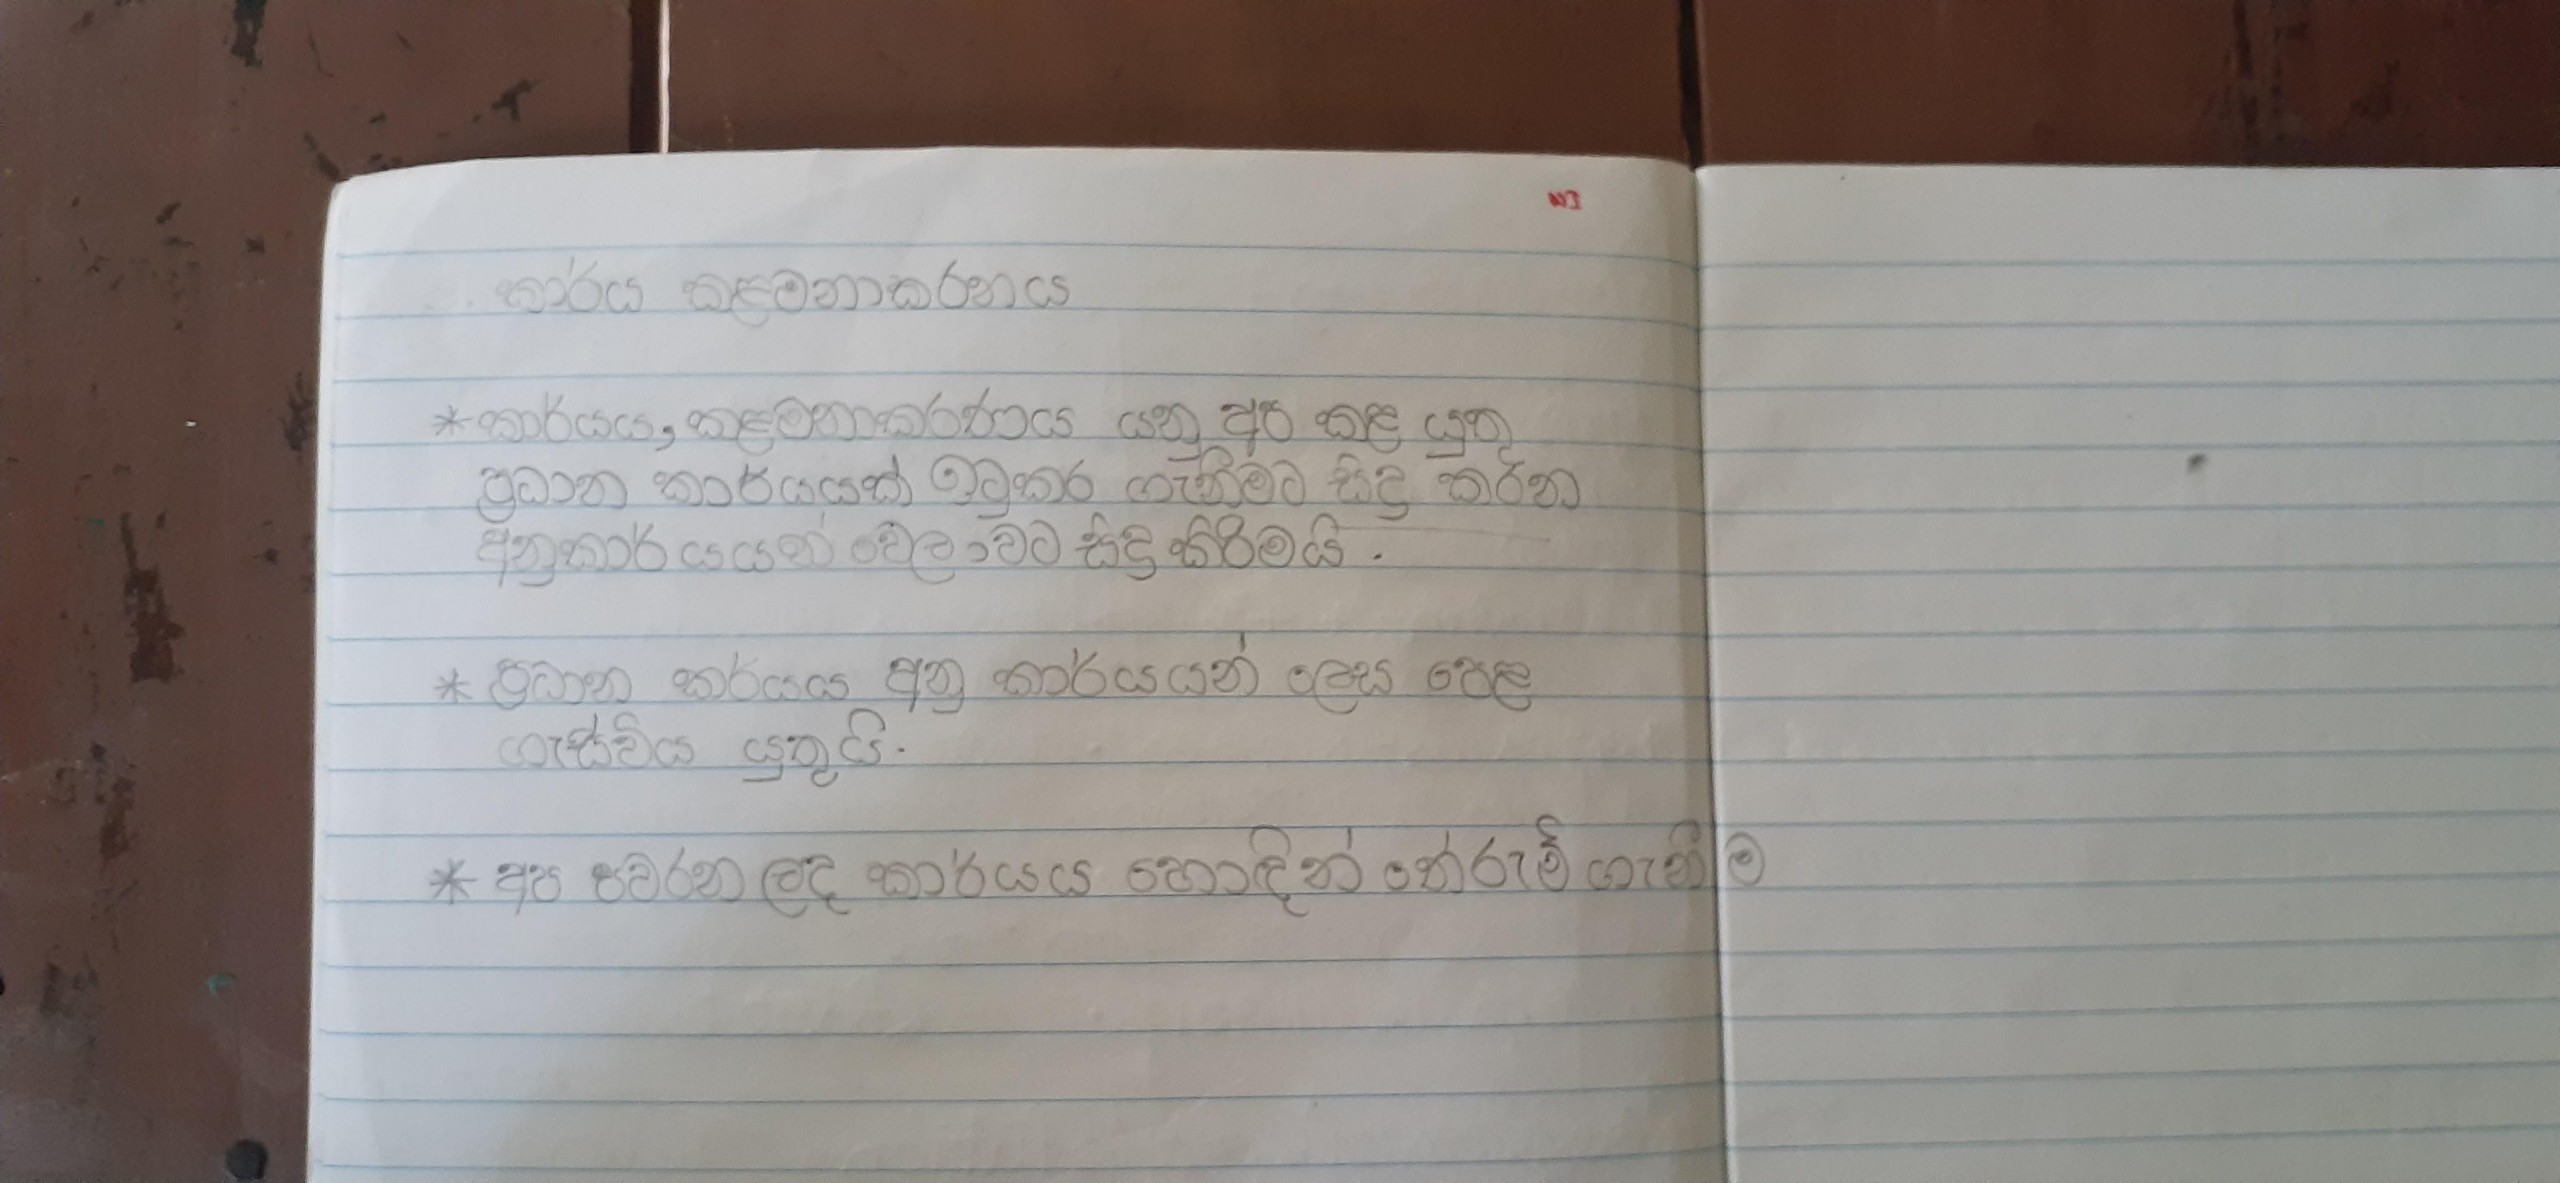 කාර්ය කළමනාකරනය
* කාර්යය, කළමනාකරණය යනු අප කළ යුතු
ප්‍රධාන කාර්යයක් ඉටුකර ගැනීමට සිදු කරන
අනුකාර්යයන් වෙලාවට සිදු කිරීමයි.
* ප්‍රධාන කර්යය අනු කාර්යයන් ලෙස පෙළ
ගැස්විය යුතුයි.
* අප පවරන ලද කාර්යය හොඳින් තේරුම් ගැනීම